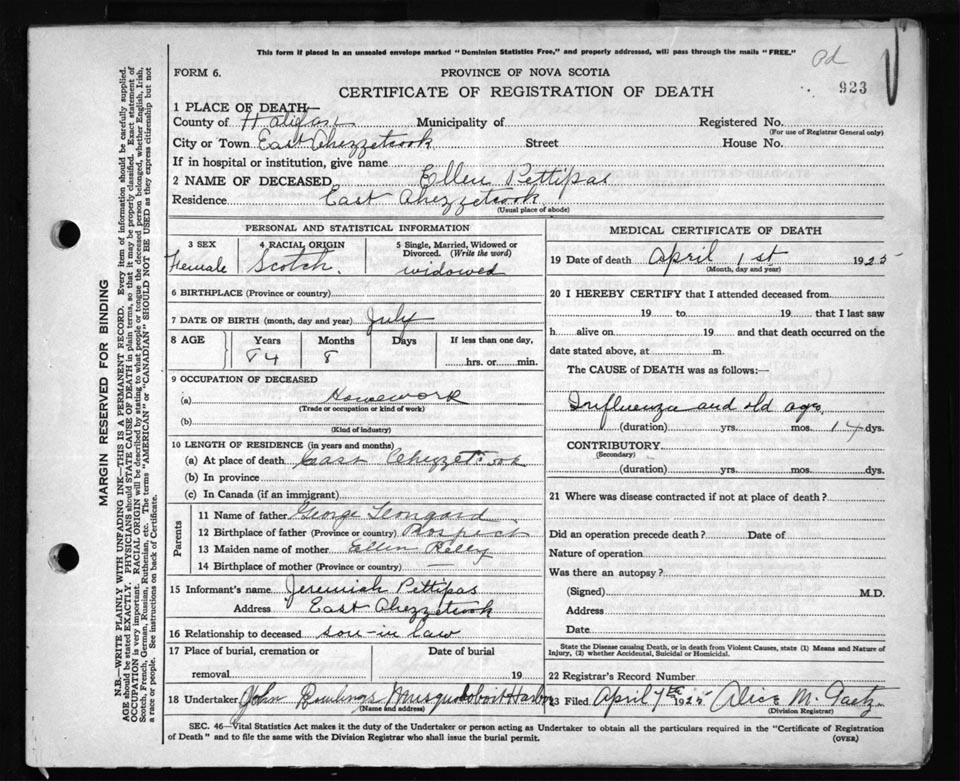 This form if placed in an unsealed envelope marked "Dominion Statistics Free," and properly addressed, will pass through the mails "FREE."
Pd
FORM 6.
PROVINCE OF NOVA SCOTIA
923
CERTIFICATE OF REGISTRATION OF DEATH
1 PLACE OF DEATH—
County of Halifax Municipality of Registered No.
(For use of Registrar General only)
City or Town East Chezzetcook Street House No.
If in hospital or institution, give name
2 NAME OF DECEASED Ellen Pettipas
Residence East Chezzetcook
(Usual place of abode)
PERSONAL AND STATISTICAL INFORMATION
3 SEX 4 RACIAL ORIGIN 5 Single, Married, Widowed or Divorced. (Write the word)
Female Scotch. widowed
6 BIRTHPLACE (Province or country)
7 DATE OF BIRTH (month, day and year) July
8 AGE Years Months Days If less than one day,
84 8 hrs. or min.
9 OCCUPATION OF DECEASED
(a) Homework
(Trade or occupation or kind of work)
(b)
(Kind of industry)
10 LENGTH OF RESIDENCE (in years and months)
(a) At place of death East Chezzetcook
(b) In province
(c) In Canada (if an immigrant)
Parents
11 Name of father George
12 Birthplace of father (Province or country) Prospect
13 Maiden name of mother Ellen Kelly
14 Birthplace of mother (Province or country) —
15 Informant's name Jeremiah Pettipas
Address East Chezzetcook
16 Relationship to deceased son-in law
17 Place of burial, cremation or removal Date of burial
19
18 Undertaker John Rowlings Musquodoboit Harbor
(Name and address)
MEDICAL CERTIFICATE OF DEATH
19 Date of death April 1st 1925
(Month, day and year)
20 I HEREBY CERTIFY that I attended deceased from
19 to 19 that I last saw
h alive on 19 and that death occurred on
date stated above, at m.
The CAUSE of DEATH was as follows:—
Influenza and old age,
(duration) yrs. mos. 14 dys.
CONTRIBUTORY
(Secondary)
(duration) yrs. mos. dys.
21 Where was disease contracted if not at place of death?
Did an operation precede death? Date of
Nature of operation
Was there an autopsy?
(Signed) M.D.
Address
Date
State the Disease causing Death, or in death from Violent Causes, state (1) Means and Nature of
Injury, (2) whether Accidental, Suicidal or Homicidal.
22 Registrar's Record Number
23 Filed April 7th 1925 Alice M. Gaetz
(Division Registrar)
SEC. 46—Vital Statistics Act makes it the duty of the Undertaker or person acting as Undertaker to obtain all the particulars required in the "Certificate of Registration
of Death" and to file the same with the Division Registrar who shall issue the burial permit.
(OVER)
MARGIN RESERVED FOR BINDING
N.B.—WRITE PLAINLY WITH UNFADING INK—THIS IS A PERMANENT RECORD. Every item of information should be carefully supplied.
AGE should be stated EXACTLY. PHYSICIANS should STATE CAUSE OF DEATH in plain terms, so that it may be properly classified. Exact statement of
OCCUPATION is very important. RACIAL ORIGIN will be described by stating to what people or tongue the deceased person belonged, whether English, Irish,
Scotch, French, German, Russian, Ruthenian, etc. The terms "AMERICAN" or "CANADIAN" SHOULD NOT BE USED as they express citizenship but not
a race or people. See instructions on back of Certificate.